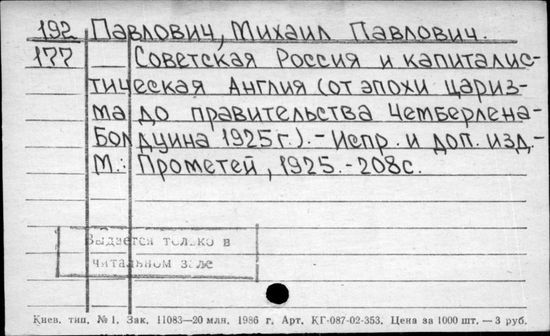 192 Павлович, Михаил Павлович.
177 Советская Россия и капиталис-
тическая Англия (от эпохи цариз-
ма до правительства Чемберлена-
Болдуина 1925 г.).- Испр. и доп. изд.-
М.: Прометей, 1925.-208с.
Выдается только в
читальном зале
Киев. тип. № 1. Зак. 11083—20 млн. 1986 г. Арт. КГ-087-02-353. Цена за 1000 шт. — 3 руб.